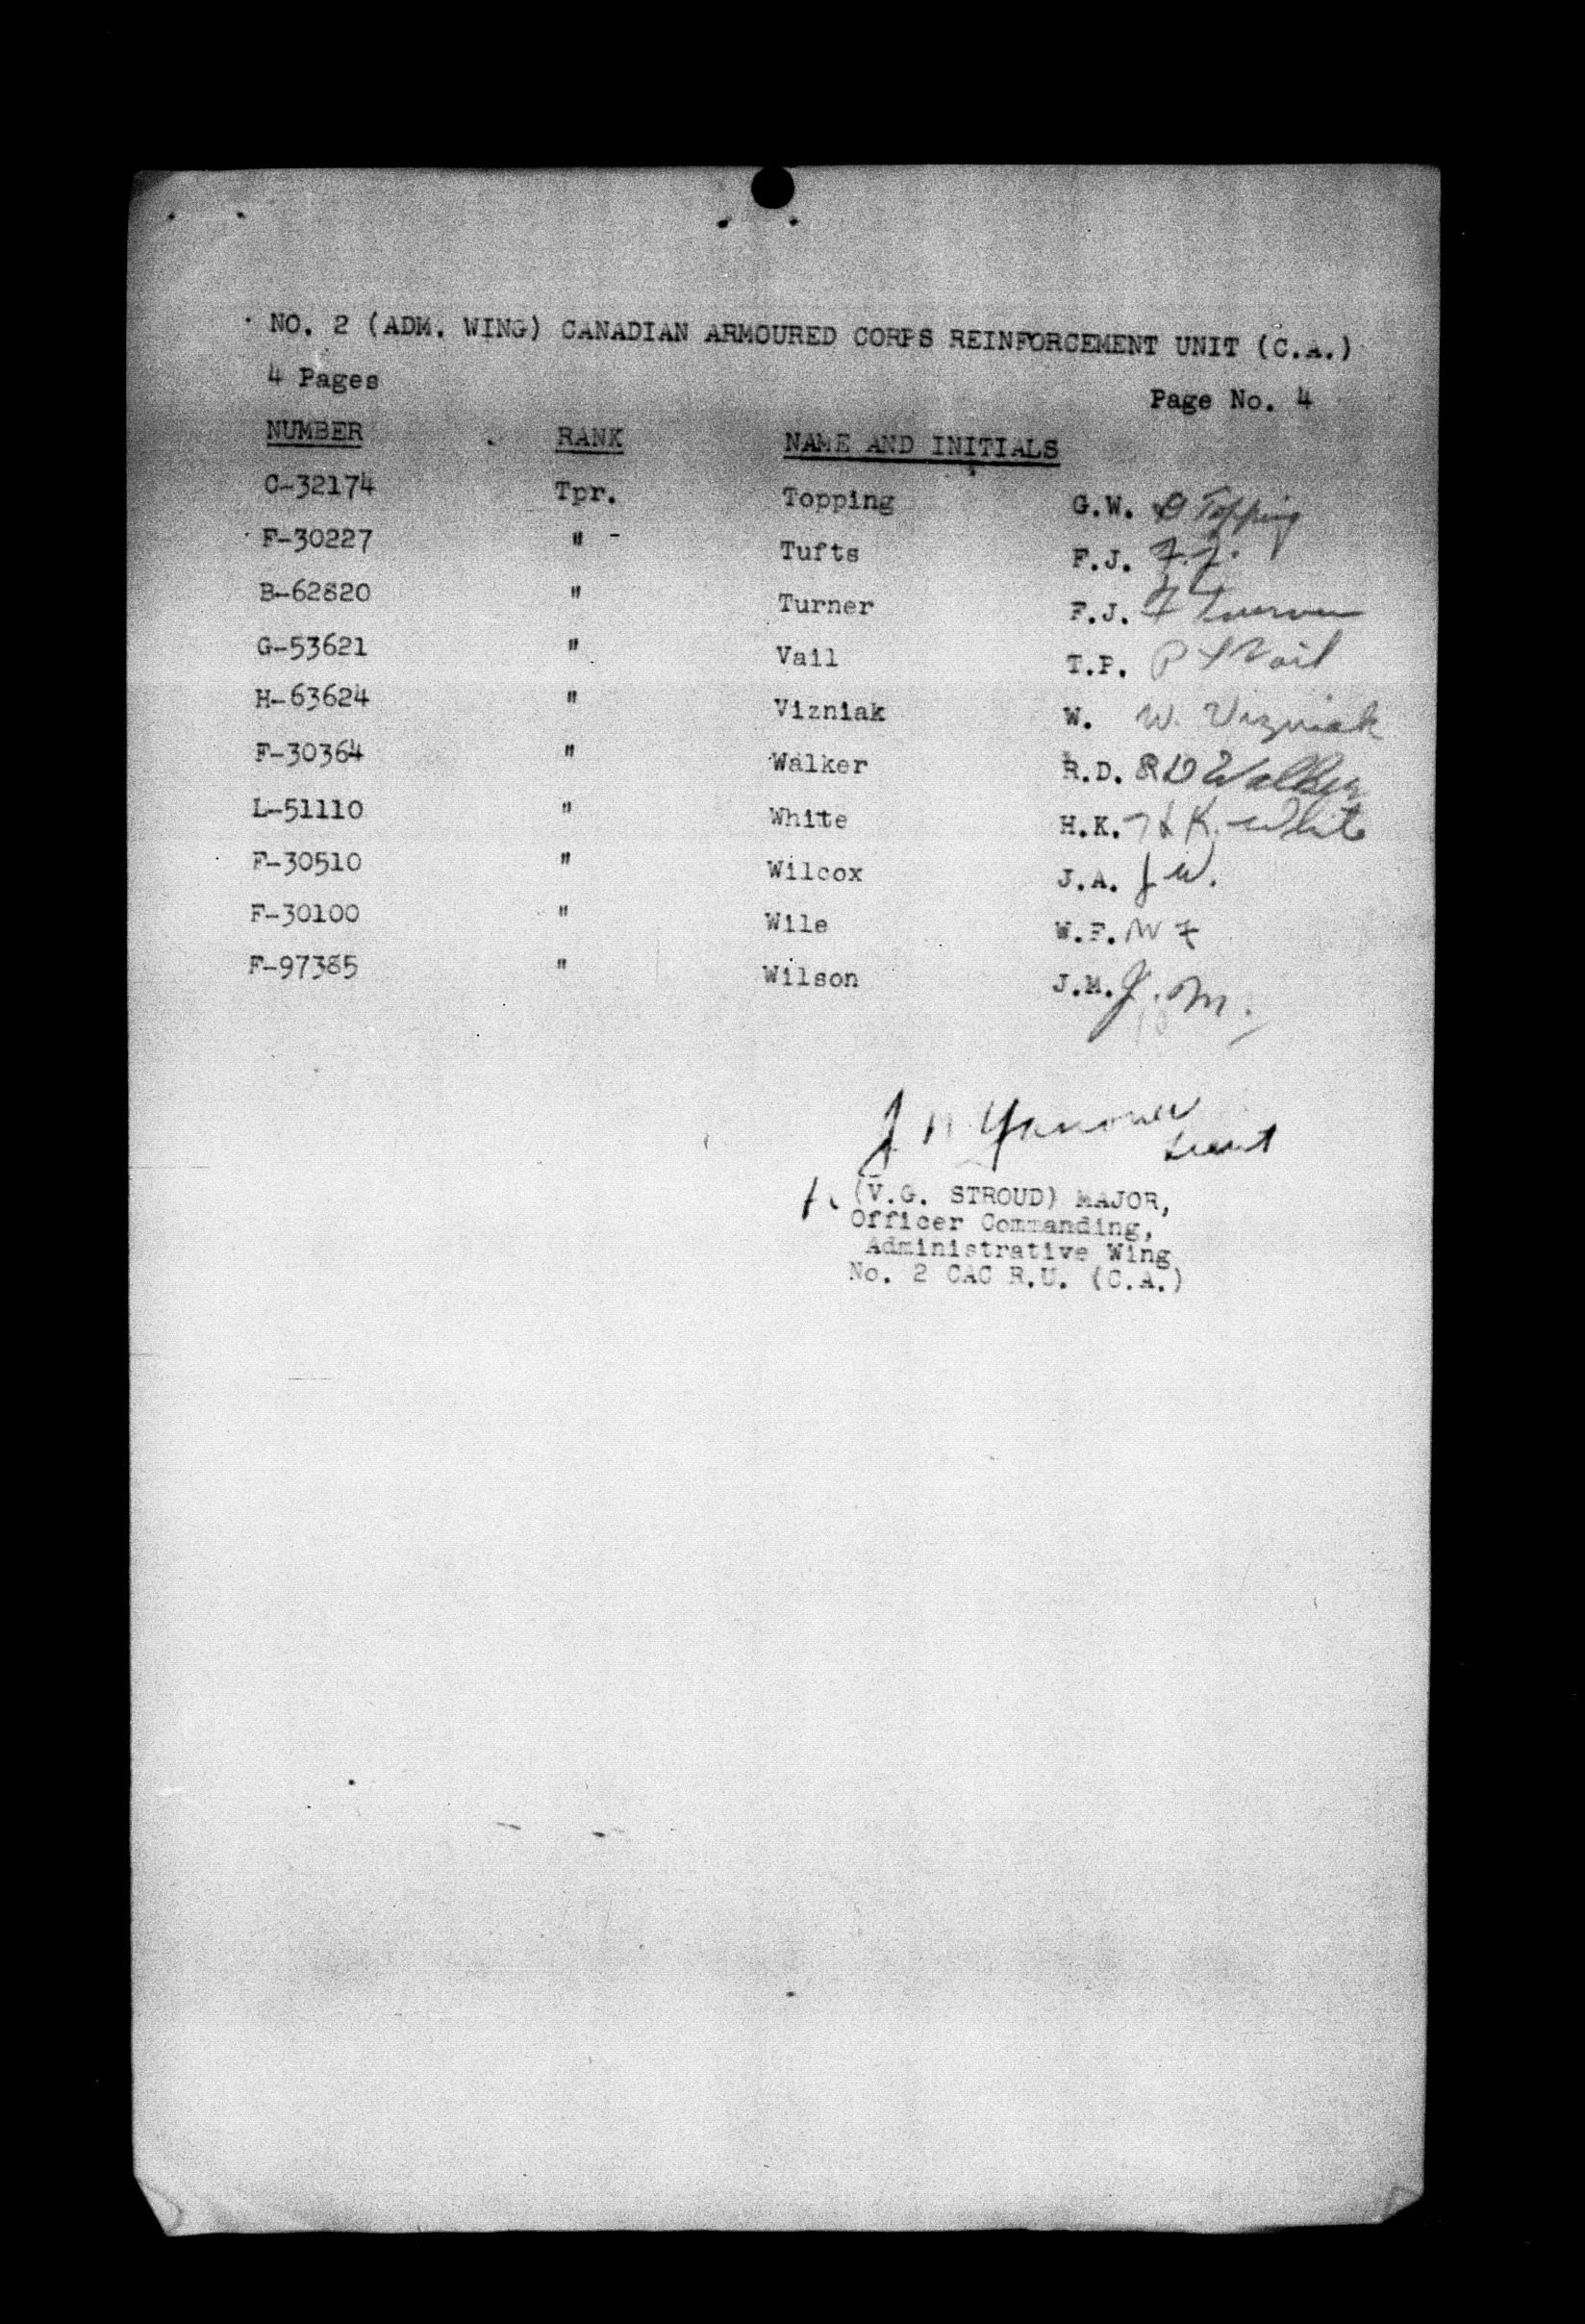 NO. 2 (ADM. WING) CANADIAN ARMOURED CORPS REINFORCEMENT UNIT (C.A.)
4 Pages Page No. 4
NUMBER RANK NAME AND INITIALS
C-32174 Tpr. Topping G.W. G Topping
F-30227 " - Tufts F.J. F.J.
B-62820 " Turner F.J. F Turner
G-53621 " Vail T.P. P T Vail
H-63624 " Vizniak W. W. Vizniak
F-30364 " Walker R.D. R D Walker
L-51110 " White H.K. H K. White
F-30510 " Wilcox J.A. J W.
F-30100 " Wile W.F. W F
F-97385 " Wilson J.M. J. M.
J
Lieut
(V.G. STROUD) MAJOR,
Officer Commanding,
Administrative Wing
No. 2 CAC R.U. (C.A.)